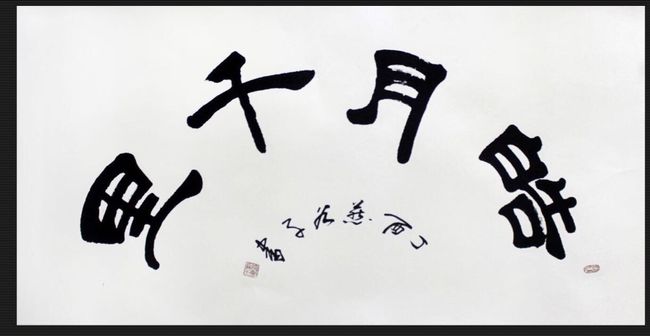 皓月千里
丁酉燕子書